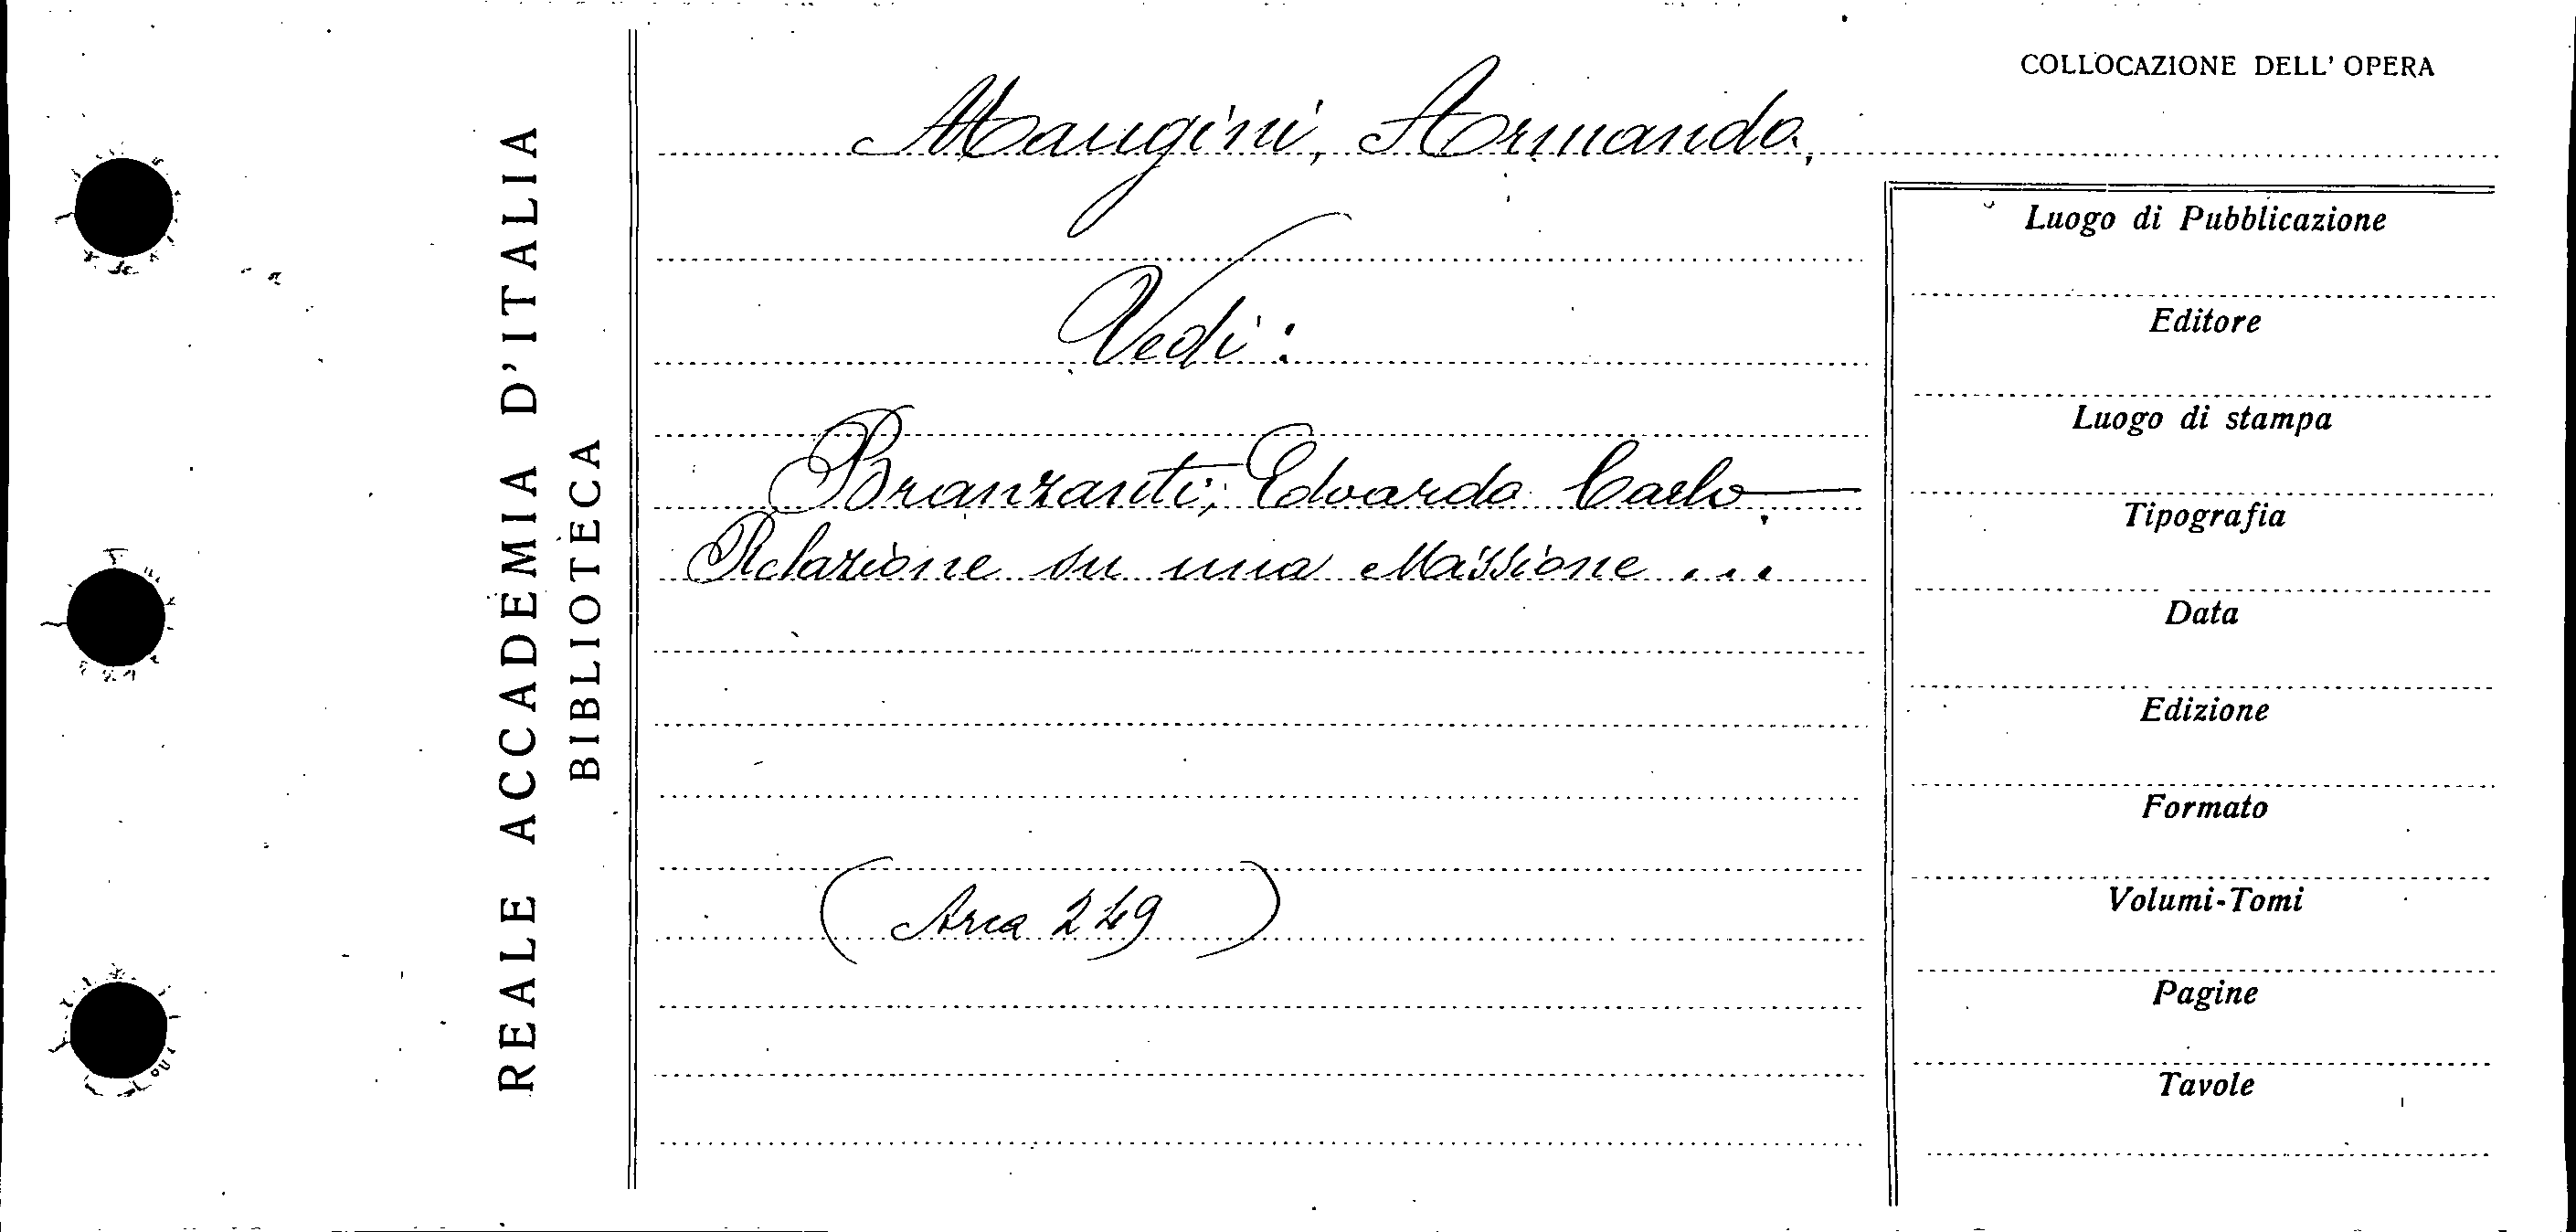 REALE ACCADEMIA D'ITALIA
BIBLIOTECA
Mangini, Armando,
Vedi:
Branzanti, Edoardo Carlo.—
Relazione su una Missione ...
(Area 249)
COLLOCAZIONE DELL' OPERA
Luogo di Pubblicazione
Editore
Luogo di stampa
Tipografia
Data
Edizione
Formato
Volumi-Tomi
Pagine
Tavole